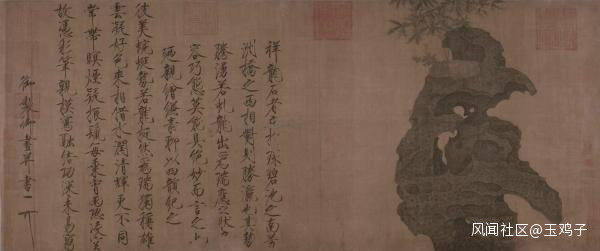 祥龍石者立於環碧池之南芳
洲橋之西相對則勝瀛也其勢
騰湧若虬龍出為瑞應之狀奇
容巧態莫能具絕妙而言之也
廼親繪縑素聊以四韻紀之
彼美蜿蜒勢若龍挺然為瑞獨稱雄
雲凝好色來相借水潤清輝更不同
常帶暝煙疑振鬣每乘宵雨恐凌空
故憑彩筆親模寫融結功深未易窮
御製御畫并書
风闻社区@玉鸡子